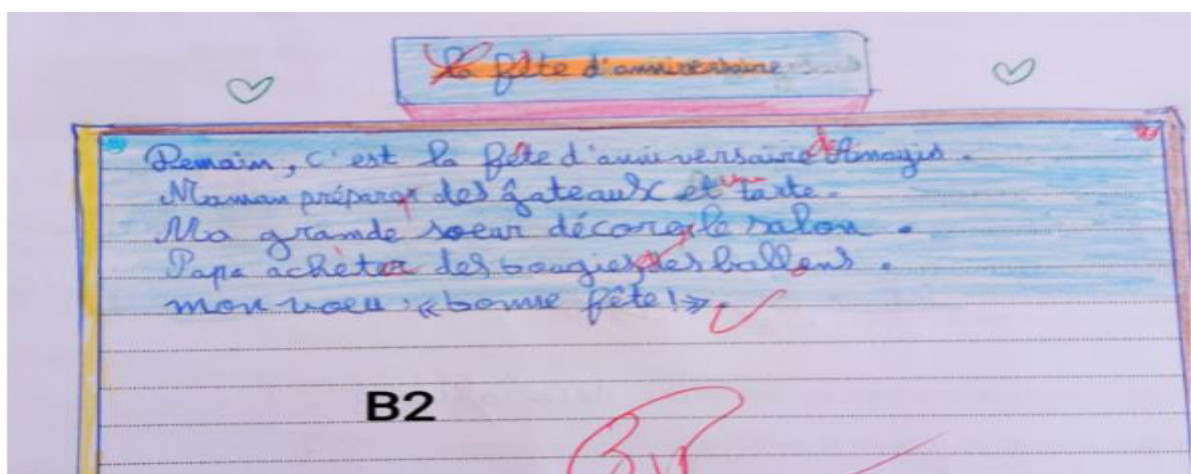 La fête d'anniversaire
Demain, c'est la fête d'anniversaire de Amayis.
Maman préparer des gateaux et une tarte.
Ma grande soeur décorer le salon.
Papa achèter des bougies des ballons.
mon voeu : « bonne fête ! ».
B2